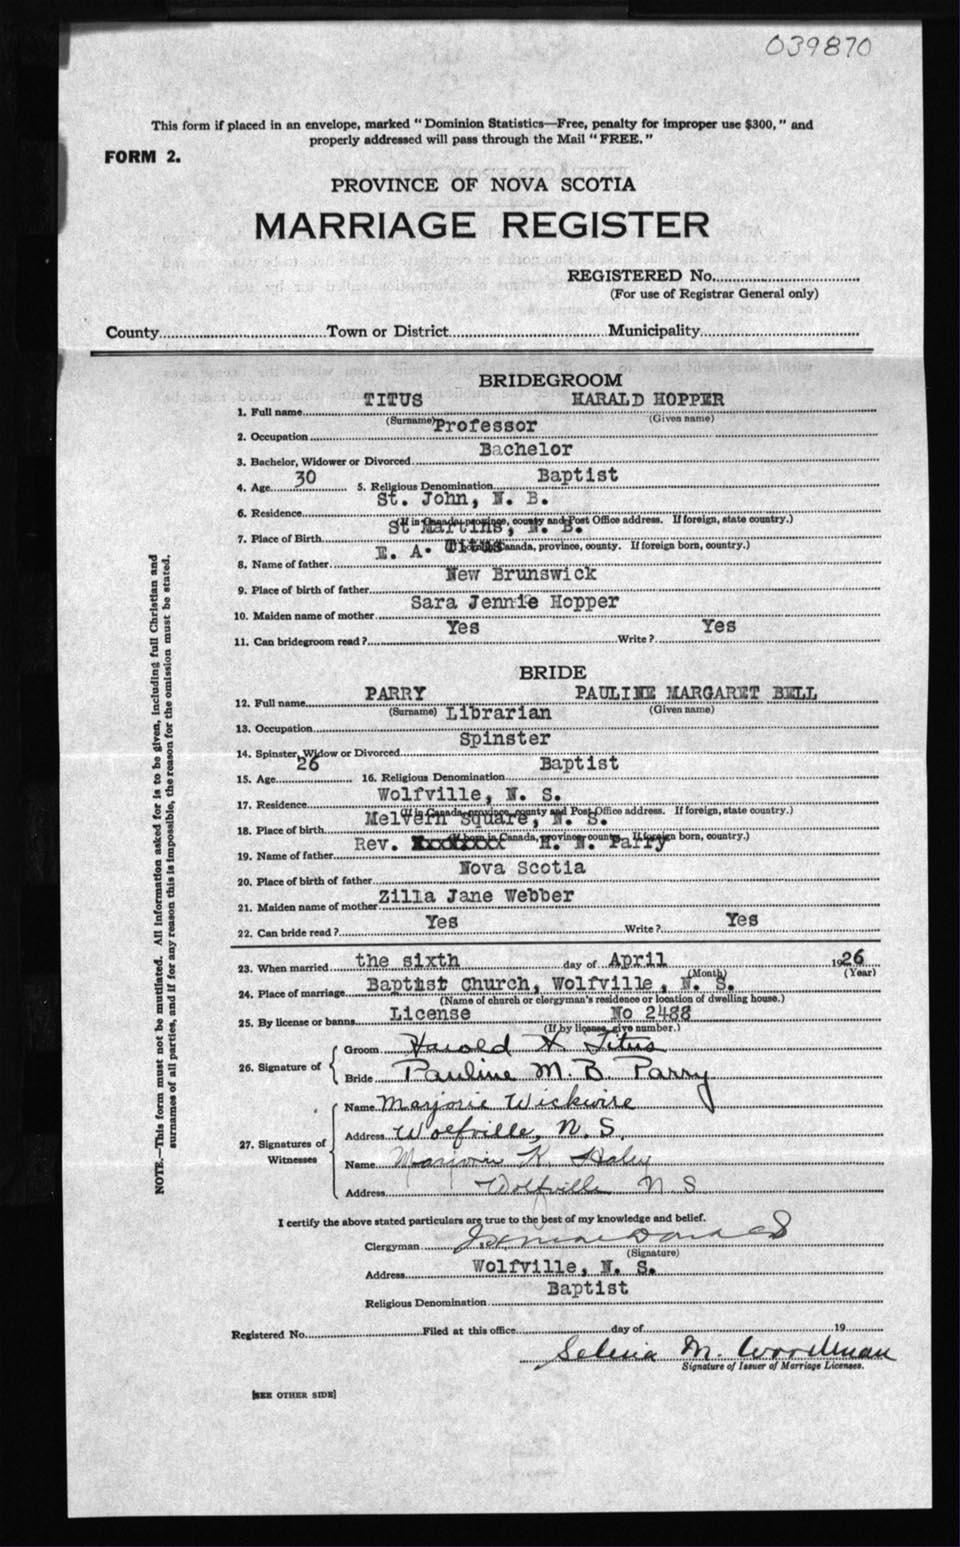 039870
This form if placed in an envelope, marked "Dominion Statistics—Free, penalty for improper use $300," and
properly addressed will pass through the Mail "FREE."
FORM 2.
PROVINCE OF NOVA SCOTIA
MARRIAGE REGISTER
REGISTERED No.
(For use of Registrar General only)
County Town or District Municipality
BRIDEGROOM
TITUS HARALD HOPPER
1. Full name
(Surname) (Given name)
Professor
2. Occupation
Bachelor
3. Bachelor, Widower or Divorced
30 Baptist
4. Age 5. Religious Denomination
St. John, N. B.
6. Residence
(If in Canada, province, county and Post Office address. If foreign, state country.)
St Martins, N. B.
7. Place of Birth
Canada, province, county. If foreign born, country.)
E. A. Titus
8. Name of father
New Brunswick
9. Place of birth of father
Sara Jennie Hopper
10. Maiden name of mother
Yes Yes
11. Can bridegroom read? Write?
BRIDE
PARRY PAULINE MARGARET BELL
12. Full name
(Surname) (Given name)
Librarian
13. Occupation
Spinster
14. Spinster, Widow or Divorced
26 Baptist
15. Age 16. Religious Denomination
Wolfville, N. S.
17. Residence
(If in Canada, province, county and Post Office address. If foreign, state country.)
Melvern Square, N. S.
18. Place of birth
(If born in Canada, province, county. If foreign born, country.)
Rev. H. N. Parry
19. Name of father
Nova Scotia
20. Place of birth of father
Zilla Jane Webber
21. Maiden name of mother
Yes Yes
22. Can bride read? Write?
23. When married the sixth day of April 1926
(Month) (Year)
24. Place of marriage Baptist Church, Wolfville, N. S.
(Name of church or clergyman's residence or location of dwelling house.)
25. By license or banns License No 2488
(If by license, give number.)
26. Signature of
Groom Harold H Titus
Bride Pauline M. B Parry
27. Signatures of Witnesses
Name Marjorie Wickwire
Address Wolfville, N. S.
Name Marjorie K. Haley
Address Wolfville N S
I certify the above stated particulars are true to the best of my knowledge and belief.
Clergyman
(Signature)
Address Wolfville, N. S.
Baptist
Religious Denomination
Registered No. Filed at this office day of 19
Selena M. Woodman
Signature of Issuer of Marriage Licenses.
[SEE OTHER SIDE]
NOTE.—This form must not be mutilated. All information asked for is to be given, including full Christian and
surnames of all parties, and if for any reason this is impossible, the reason for the omission must be stated.